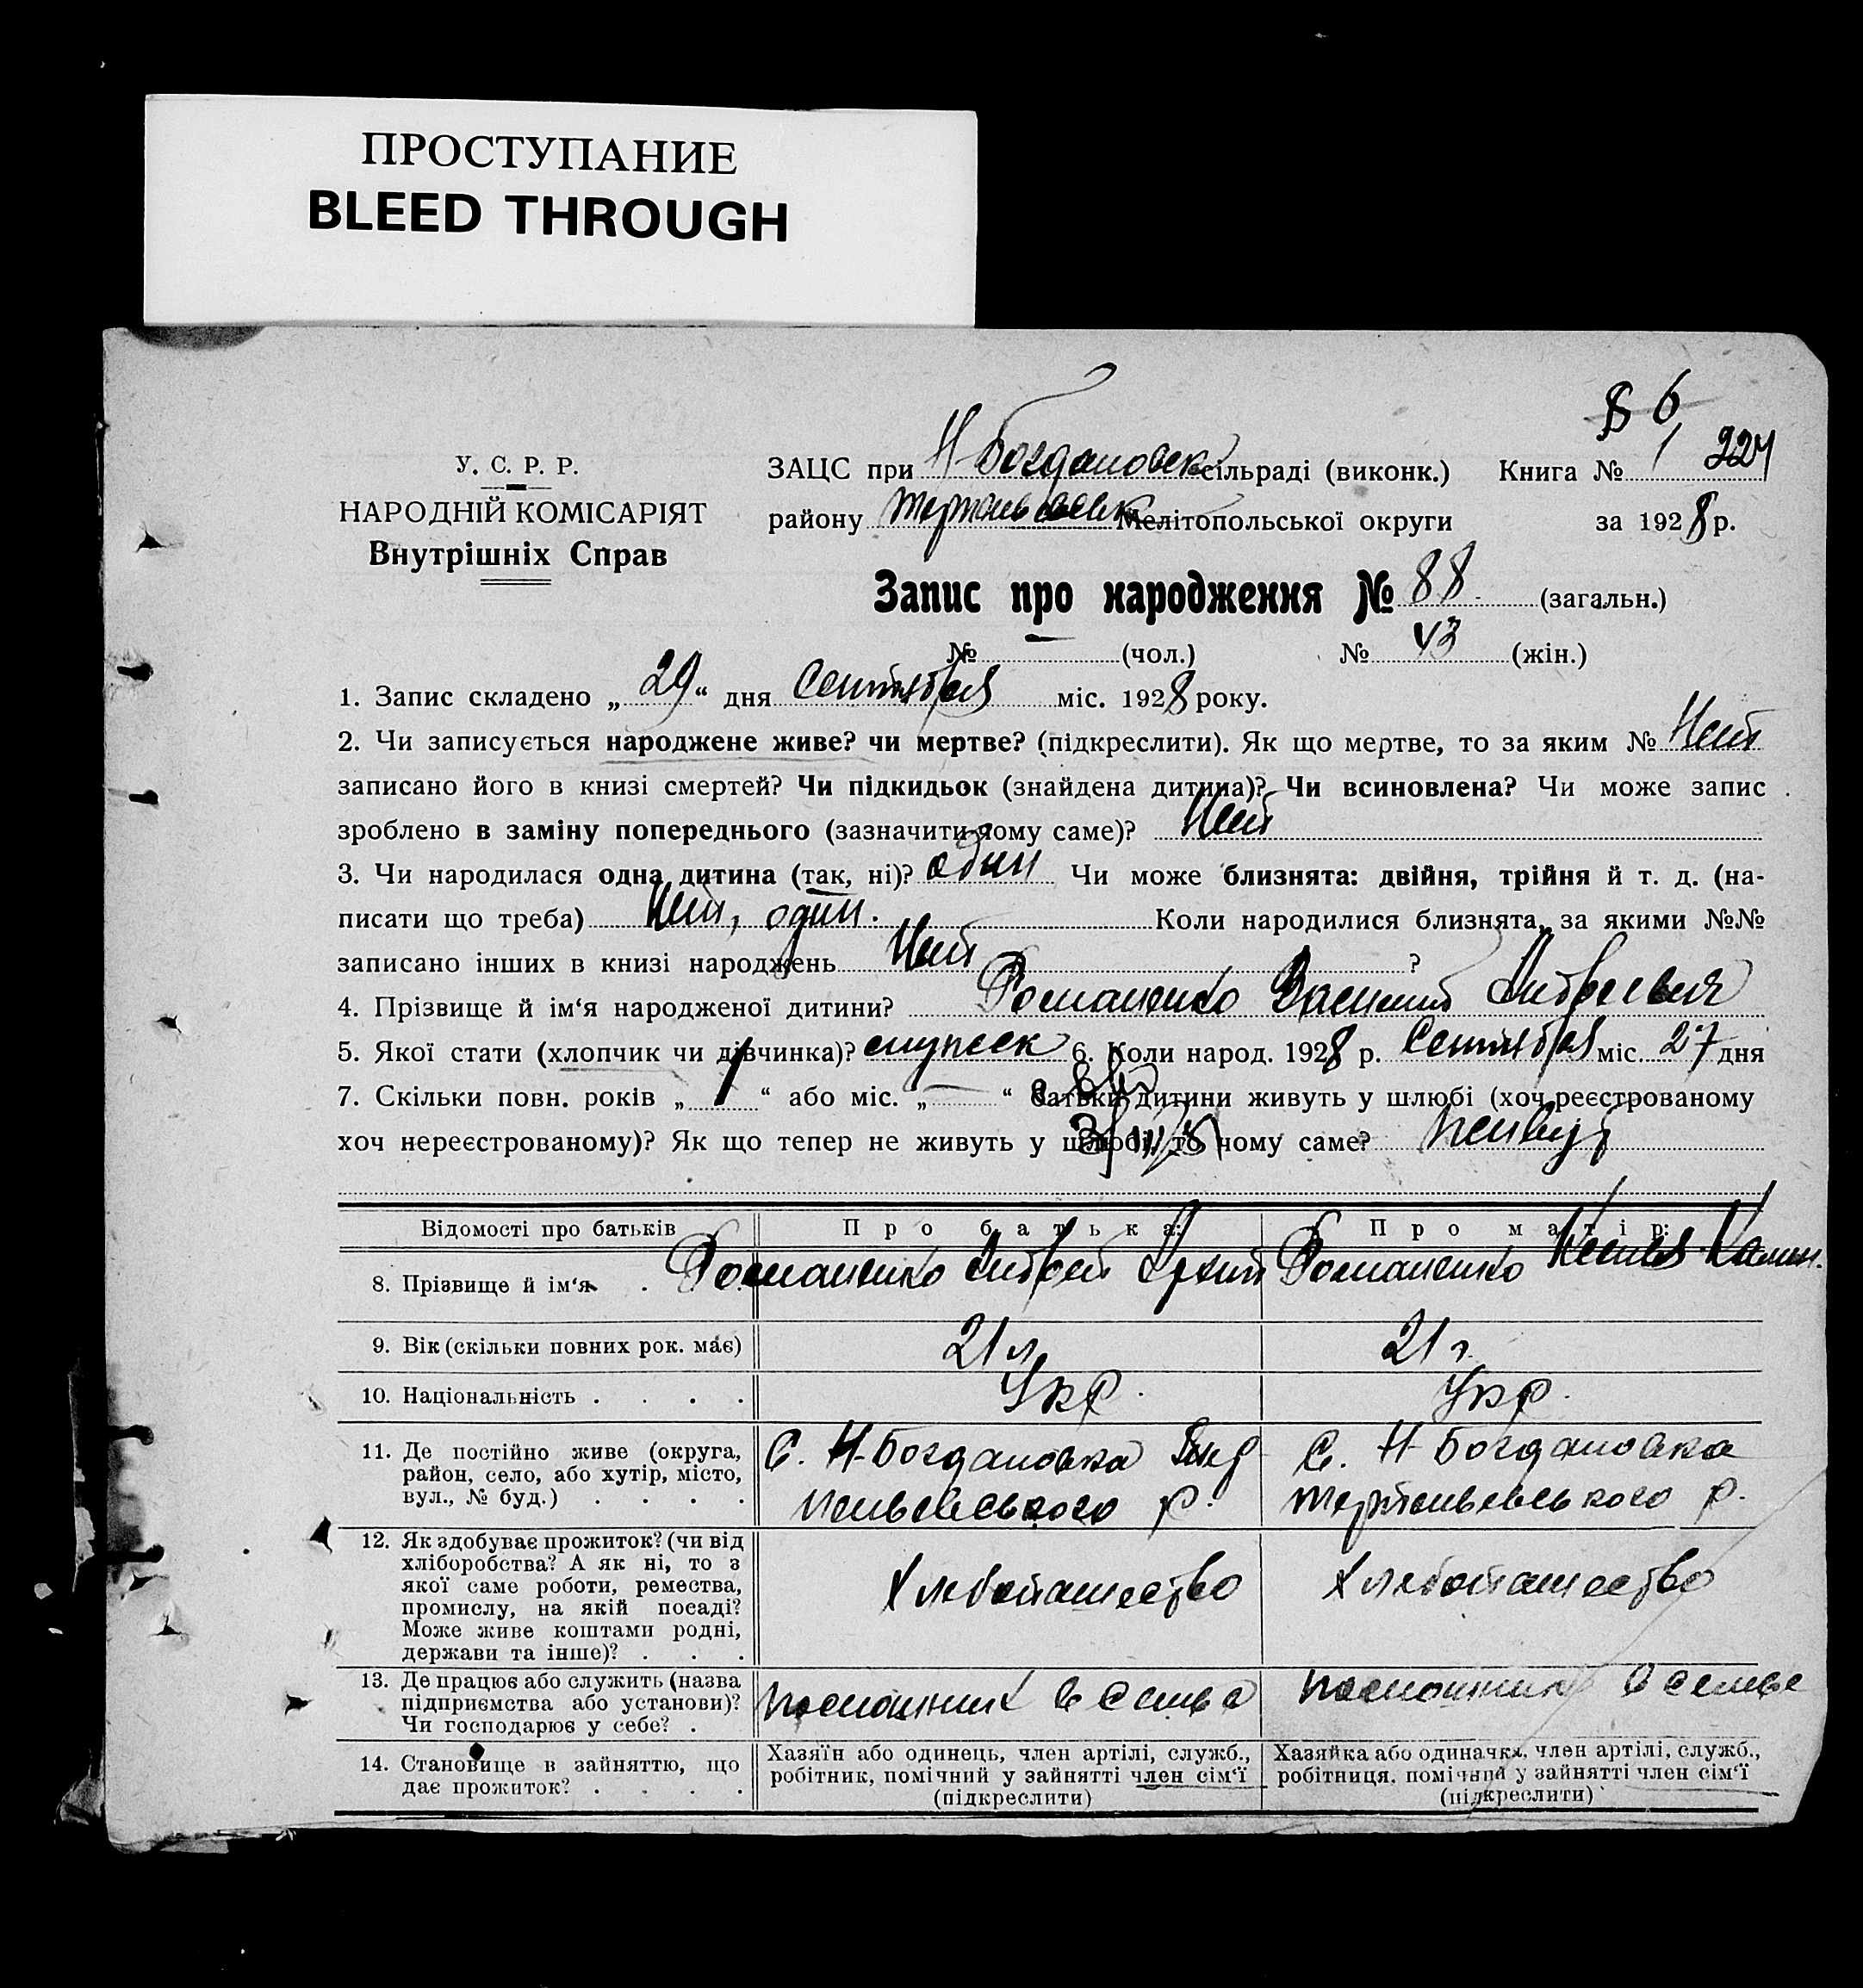 ПРОСТУПАНИЕ
BLEED THROUGH
86
У. С. Р. Р.
НАРОДНІЙ КОМІСАРІЯТ
Внутрішніх Справ
ЗАЦС при Н-Богдановск сільраді (виконк.) Книга № 1 224
району Мелітопольської округи за 1928 р.
Запис про народження № 88 (загальн.)
№ — (чол.) № 43 (жін.)
1. Запис складено „29“ дня Сентября міс. 1928 року.
2. Чи записується народжене живе? чи мертве? (підкреслити). Як що мертве, то за яким № Нет
записано його в книзі смертей? Чи підкидьок (знайдена дитина)? Чи всиновлена? Чи може запис
зроблено в заміну попереднього (зазначити чому саме)? Нет
3. Чи народилася одна дитина (так, ні)? один Чи може близнята: двійня, трійня й т. д. (на-
писати що треба) Нет, один. Коли народилися близнята, за якими №№
записано інших в книзі народжень Нет ?
4. Прізвище й ім‘я народженої дитини? Романенко
5. Якої стати (хлопчик чи дівчинка)? 6. Коли народ. 1928 р. Сентября міс. 27 дня
7. Скільки повн. років „1“ або міс. „—“ батьки дитини живуть у шлюбі (хоч реєстрованому
хоч нереєстрованому)? Як що тепер не живуть у шлюбі, то чому саме? живут
Відомості про батьків Про батька: Про матір:
8. Прізвище й ім‘я . . Романенко Андрей Романенко
9. Вік (скільки повних рок. має) 21 л. 21 г.
10. Національність . . . . Укр. Укр.
11. Де постійно живе (округа, район, село, або хутір, місто, вул., № буд.) . . . . С. Н-Богдановка р. С. Н-Богдановка р.
12. Як здобуває прожиток? (чи від хліборобства? А як ні, то з якої саме роботи, ремества, промислу, на якій посаді? Може живе коштами родні, держави та інше)? . . . Хлебопашество Хлебопашество
13. Де працює або служить (назва підприємства або установи)? Чи господарює у себе? . помошник в семье помошник в семье
14. Становище в зайняттю, що дає прожиток? . . . . Хазяїн або одинець, член артілі, служб., робітник, помічний у зайнятті член сім‘ї (підкреслити) Хазяйка або одиначка, член артілі, служб., робітниця, помічний у зайнятті член сім‘ї (підкреслити)